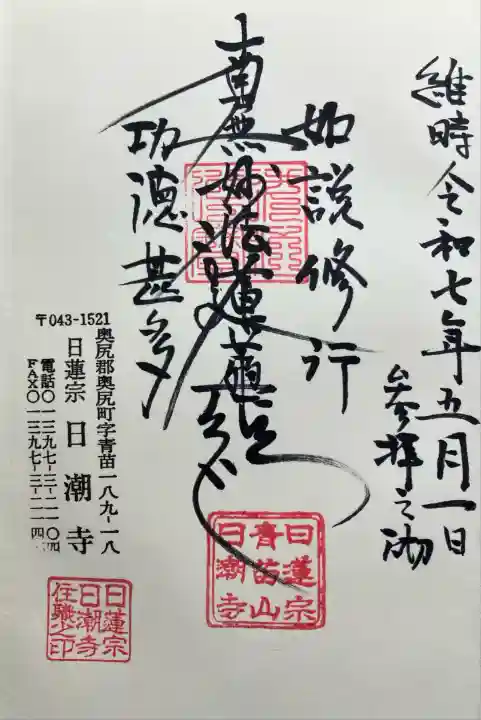 維時令和七年五月一日
参拝之砌
如説修行
南無妙法蓮華経
功徳甚多
日蓮宗
青苗山
日潮寺
〒043-1521
奥尻郡奥尻町字青苗一八九-一八
日蓮宗 日潮寺
電話〇一三九七-三-二一〇四
FAX〇一三九七-三-二一一四
日蓮宗
日潮寺